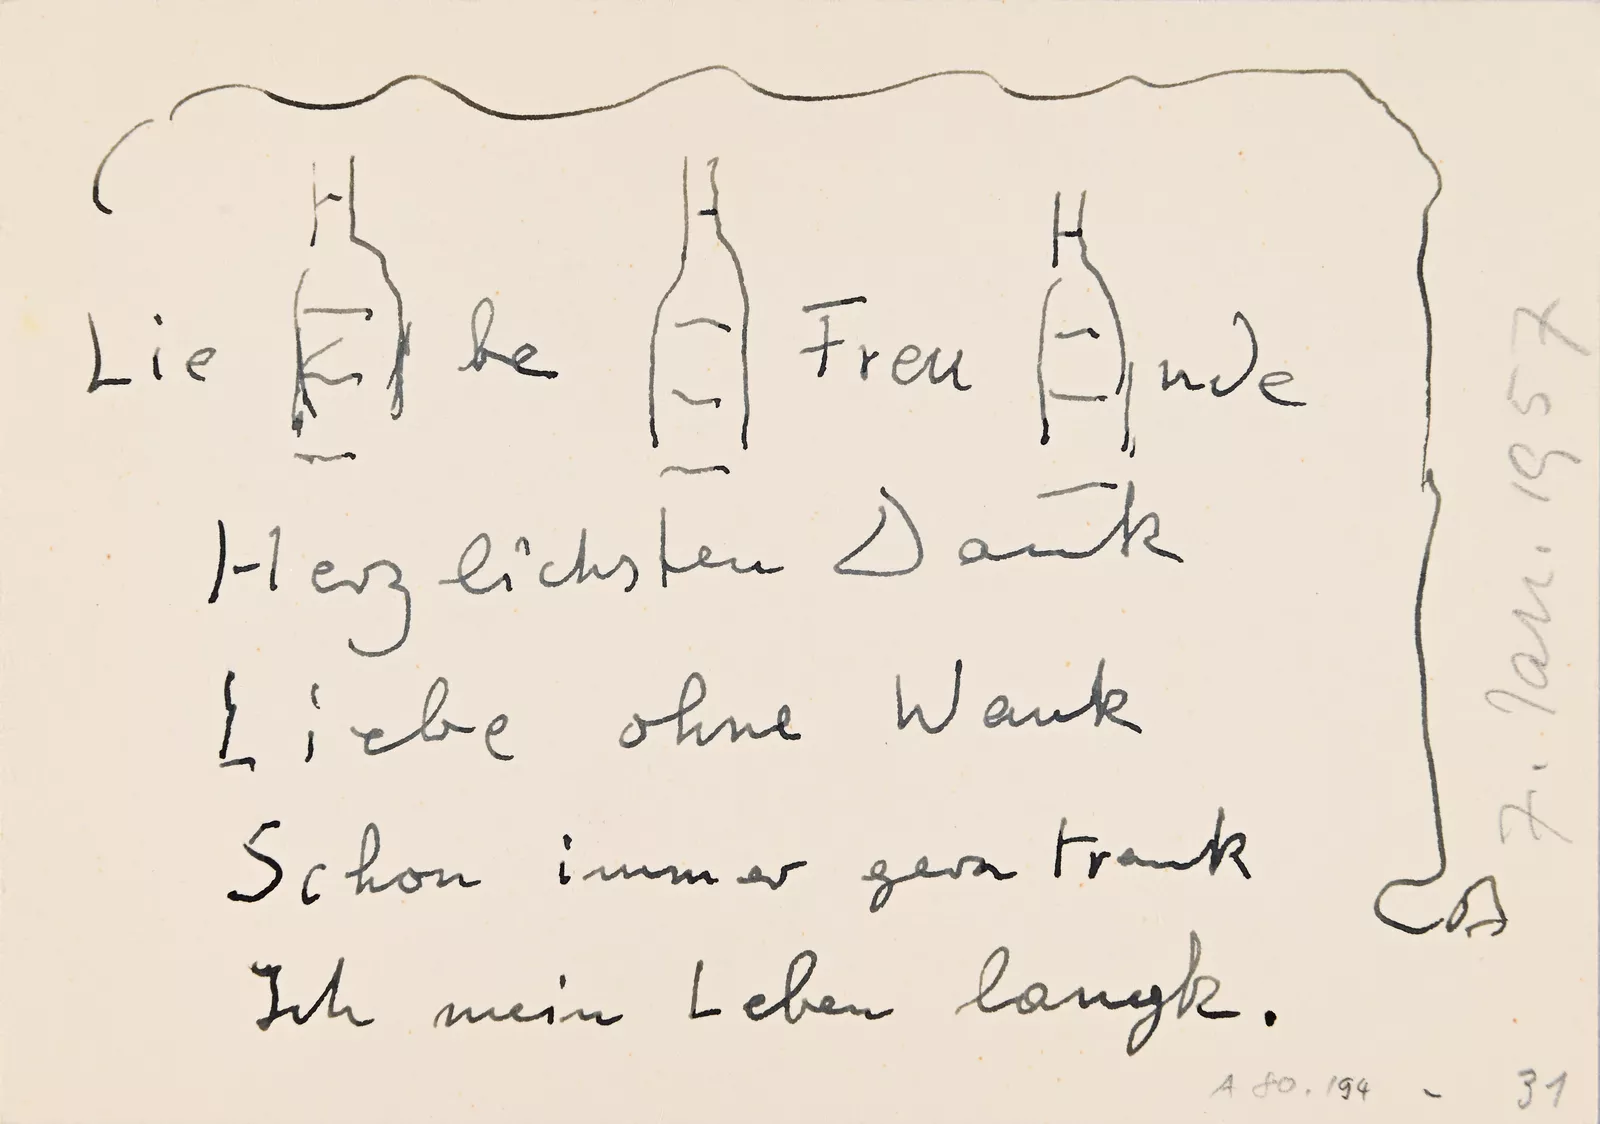 Lie be Freu nde
Herzlichsten Dank
Liebe ohne Wank
Schon immer gern trank
Ich mein Leben langk.
7. Jan. 1957
A 80.194 - 31